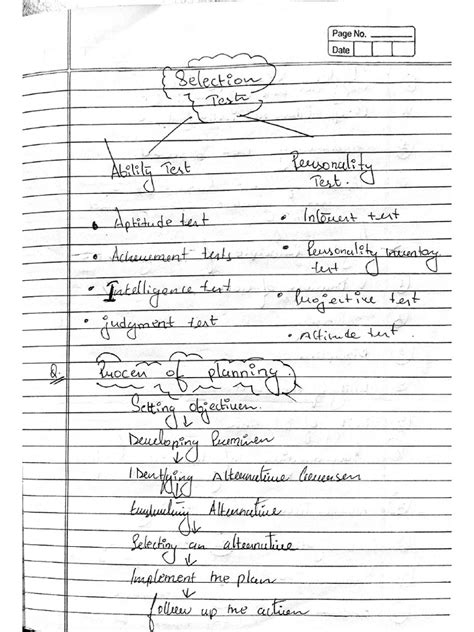 Page No.
Date
Selection
Tests
Ability Test
Personality
Test.
• Aptitude test
• Interest test
• Achievement tests
• Personality inventory
test
• Intelligence test
• Projective test
• judgment test
• Attitude test.
Q. Process of planning.
Setting objectives.
Developing Premises
Identifying Alternative Courses
Evaluating Alternative
Selecting an alternative
Implement the plan
follow up the action